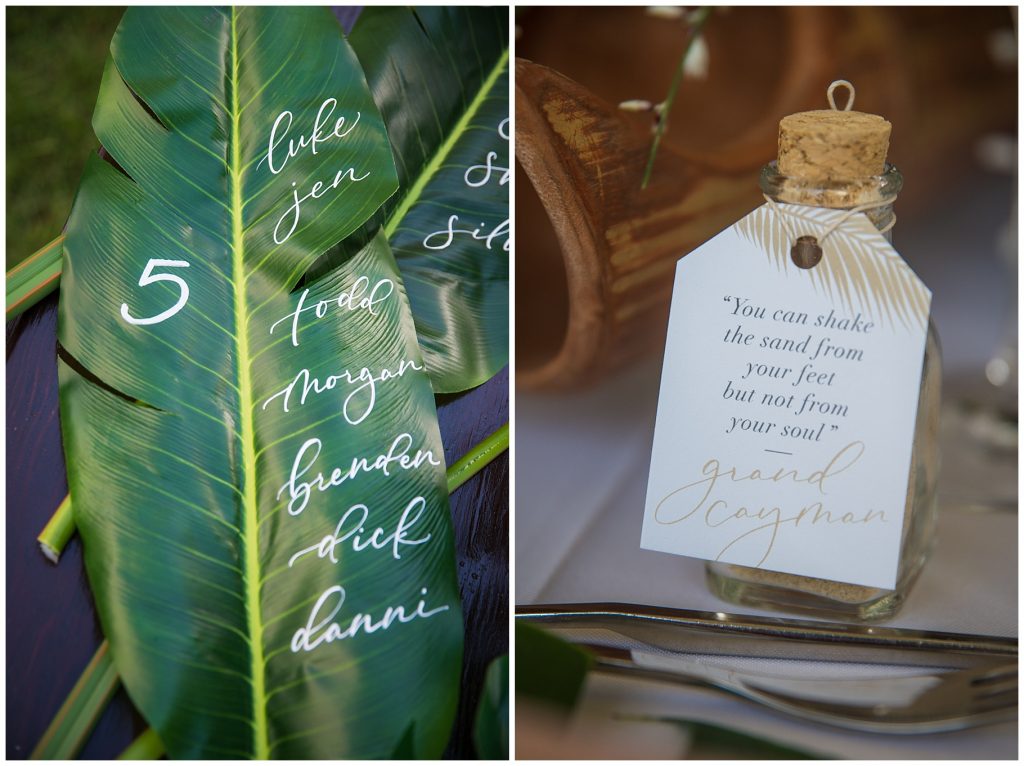 luke
jen
5
todd
morgan
brenden
dick
danni
“You can shake
the sand from
your feet
but not from
your soul”
—
grand
cayman